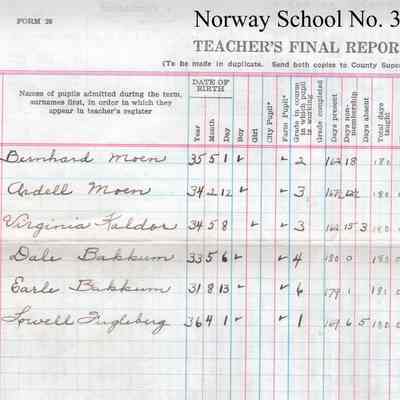 FORM 28
Norway School No. 3
TEACHER'S FINAL REPOR
(To be made in duplicate. Send both copies to County Supe
Names of pupils admitted during the term, surnames first, in order in which they appear in teacher's register
DATE OF BIRTH
Year Month Day Boy Girl City Pupil* Farm Pupil* Grade in course in which pupil is working Grade completed Days present Days non-membership Days absent Total days taught
Bernhard Moen 35 5 1 ✓ ✓ 2 162 18 180
Ardell Moen 34 2 12 ✓ ✓ 3 180
Virginia Faldor 34 5 8 ✓ ✓ 3 162 15 3 180
Dale Bakkum 33 5 6 ✓ ✓ 4 180 0 180
Earle Bakkum 31 8 13 ✓ ✓ 6 179 1
Lowell Ingleberg 36 4 1 ✓ ✓ 1 169 6 5 180